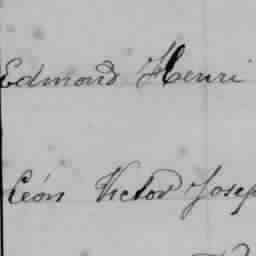 Edmond Henri
Léon Victor Josep